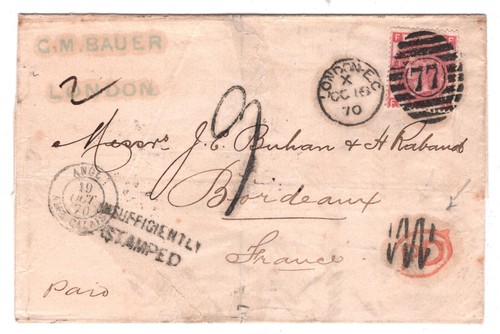 C.M. BAUER
LONDON
LONDON.E.C
X
OC 18
70
77
2
9
Messrs J. E. Buhan & H Rabaud
Bordeaux
France
ANGL.
19
OCT
70
INSUFFICIENTLY
STAMPED
Paid